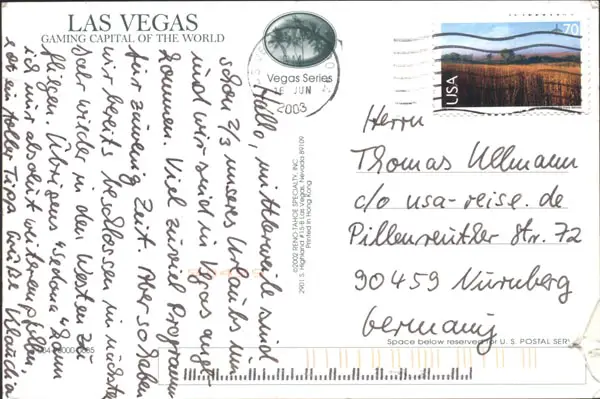 LAS VEGAS
GAMING CAPITAL OF THE WORLD
Vegas Series
JUN
2003
70
USA
Hallo, mittlerweile sind
schon 2/3 unseres Urlaubs um
und wir sind in Vegas ange-
kommen. Viel zuviel Programm
für zuwenig Zeit. Aber so haben
wir bereits beschlossen im nächsten
Jahr wieder in den Westen zu
fliegen. Übrigens "Sedona" kann
ich nur absolut weiterempfehlen,
ein toller Tipp. Grüße Claudia
©2002 RENO-TAHOE SPECIALTY, INC.
2901 S. Highland #15-B Las Vegas, Nevada 89109
Printed in Hong Kong
Herrn
Thomas Ullmann
c/o usa-reise.de
Pillenreutler Str. 72
90459 Nürnberg
Germany
Space below reserved for U. S. POSTAL SER